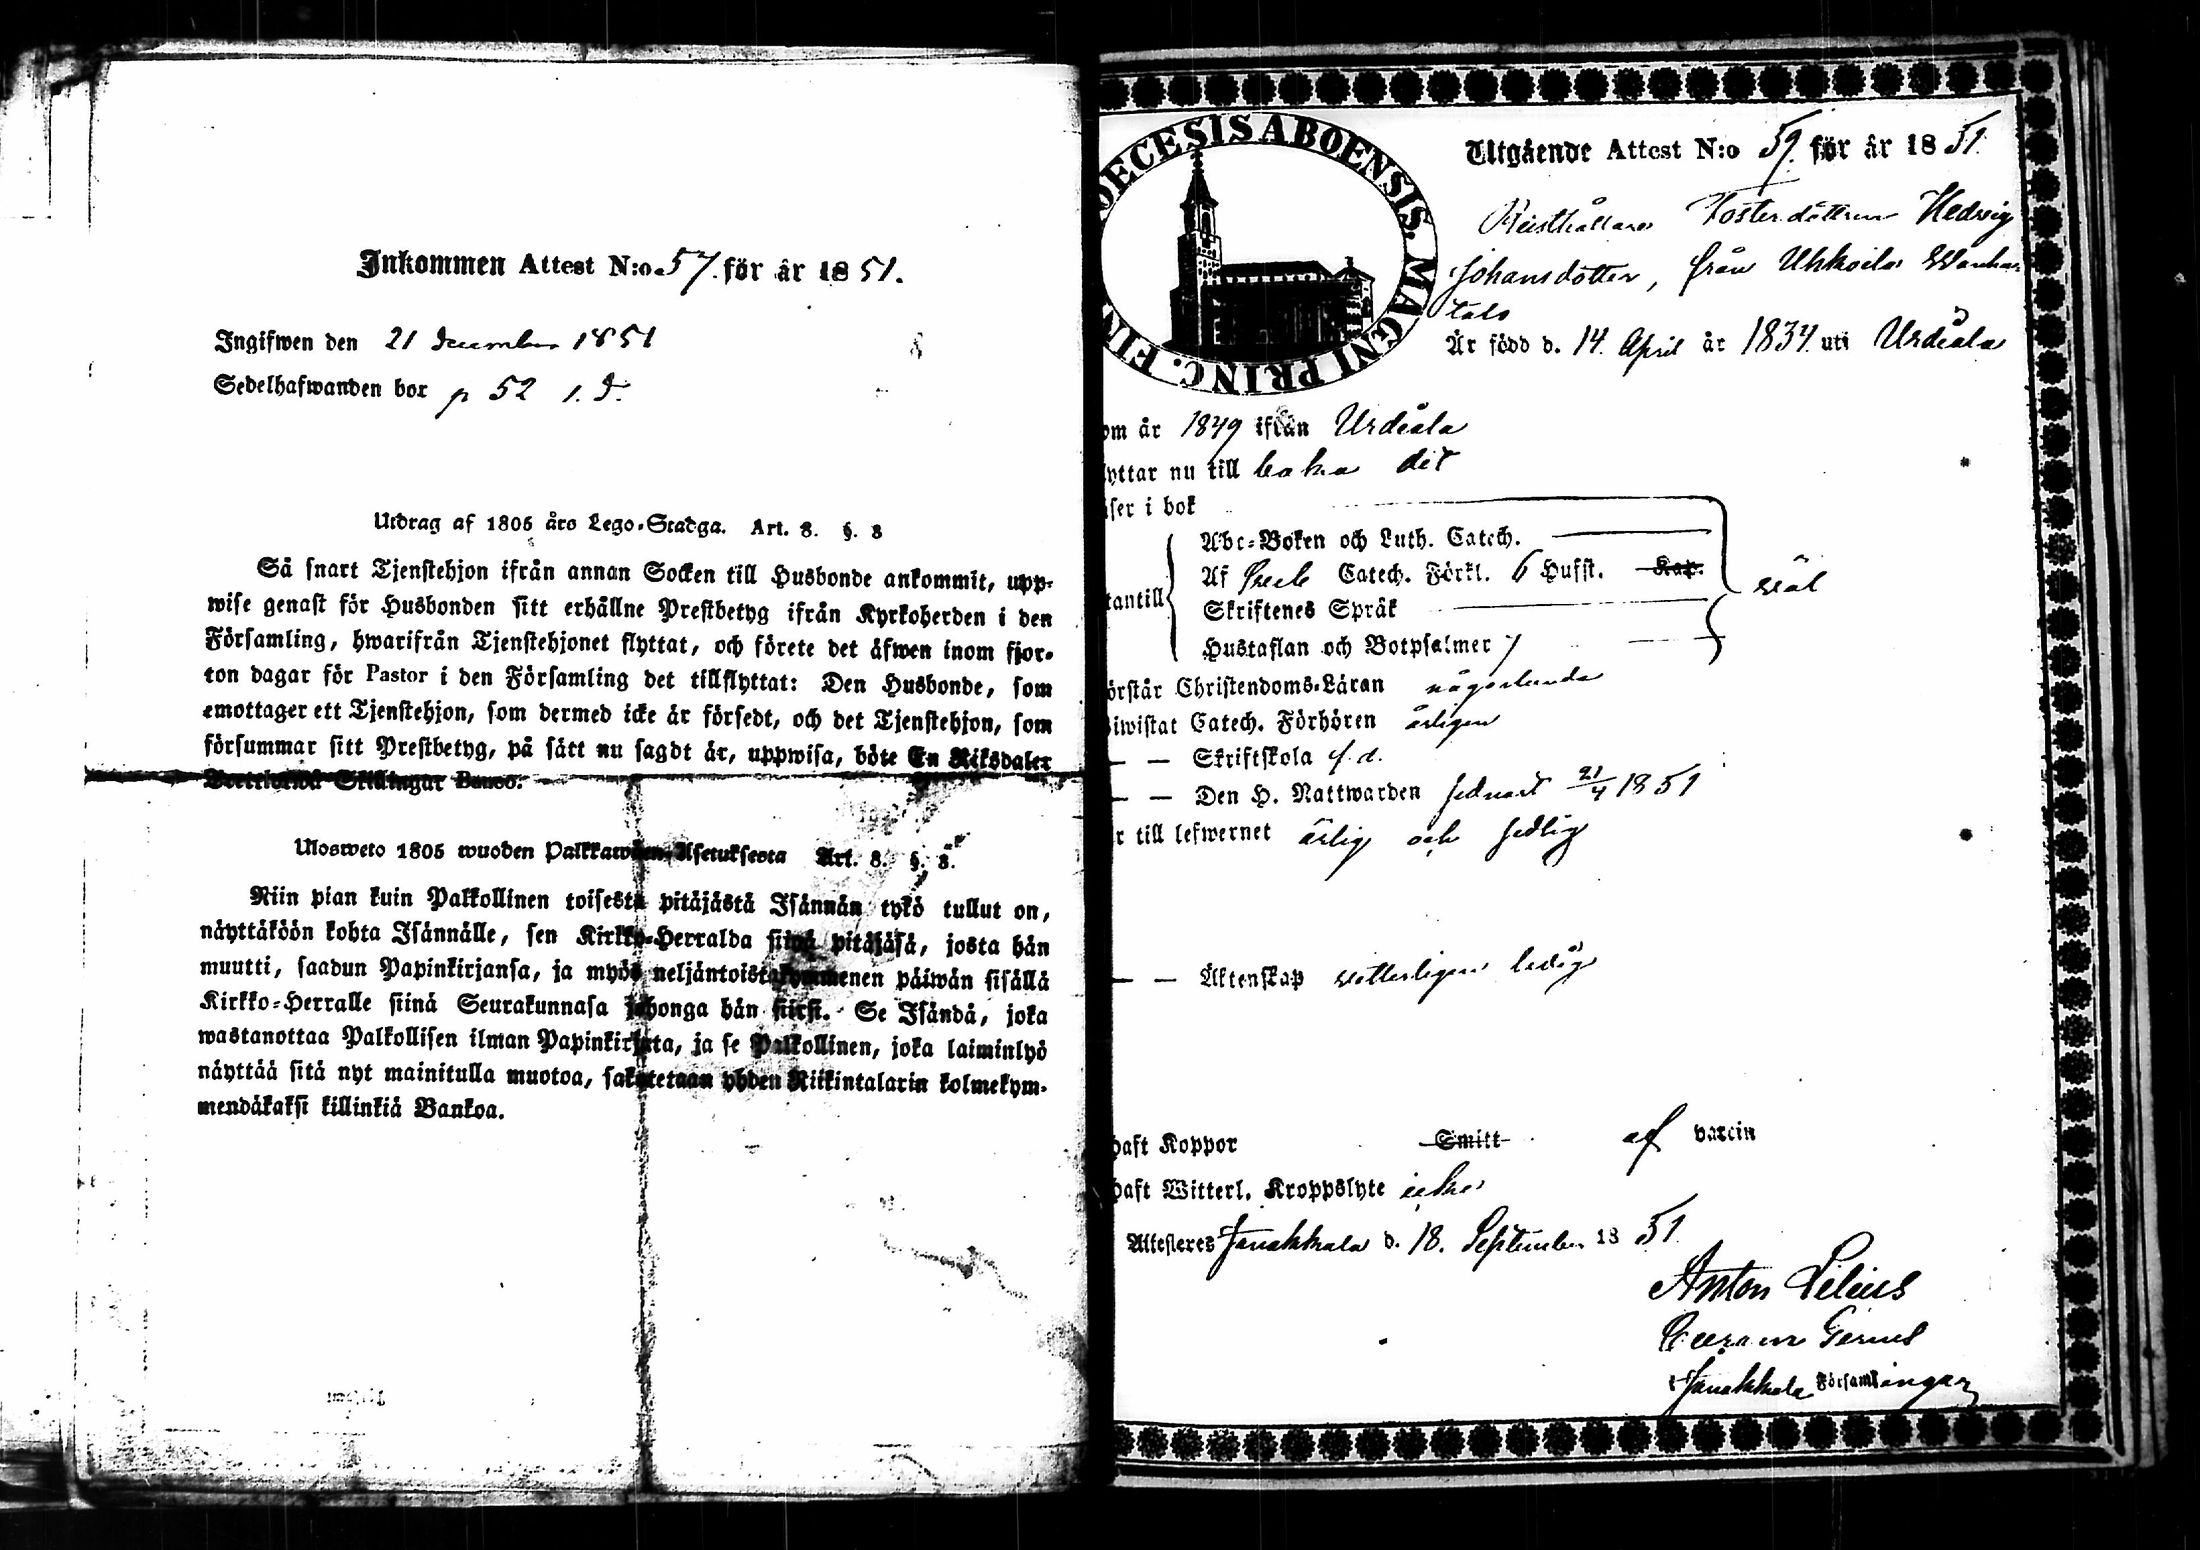 Inkommen Attest N:o 57. för år 1851.
Ingifwen den 21 december 1851
Sedelhafwanden bor p 52 1. d.
Utdrag af 1805 års Lego-Stadga. Art. 8. §. 8
Så snart Tjenstehjon ifrån annan Socken till Husbonde ankommit, upp-
wise genast för Husbonden sitt erhållne Prestbetyg ifrån Kyrkoherden i den
Församling, hwarifrån Tjenstehjonet flyttat, och förete det äfwen inom fjor-
ton dagar för Pastor i den Församling det tillflyttat: Den Husbonde, som
emottager ett Tjenstehjon, som dermed icke är försedt, och det Tjenstehjon, som
försummar sitt Prestbetyg, på sätt nu sagdt är, uppwisa, böte En Riksdaler
Skillingar Banco.
Ulosweto 1805 wuoden Palkkawäen-Asetuksesta Art. 8. §. 8.
Niin pian kuin Palkollinen toisesta pitäjästä Isännän tykö tullut on,
näyttäköön kohta Isännälle, sen Kirkko-Herralda siinä pitäjäsä, josta hän
muutti, saadun Papinkirjansa, ja myös neljäntoistakymmenen päiwän sisällä
Kirkko-Herralle siinä Seurakunnasa johonga hän siirsi. Se Isändä, joka
wastanottaa Palkollisen ilman Papinkirjata, ja se Palkollinen, joka laiminlyö
näyttää sitä nyt mainitulla muotoa, sakotetaan yhden Riikintalarin kolmekym-
mendäkaksi killinkiä Bankoa.
OECESIS ABOENSIS. MAGNI PRINC. FIN
Utgående Attest N:o 59. för år 1851.
Fosterdottren Hedvig
Johansdotter, från Uhkoila Wanhas
talo
Är född d. 14. April år 1834. uti Urdiala
om år 1849 ifrån Urdiala
lyttar nu till baka dit
äser i bok
Abc-Boken och Luth. Catech.
Af Catech. Förkl. 6 Hufst. Kap.
tantill Skriftenes Språk wäl
Hustaflan och Botpsalmer 7
örstår Christendoms-Läran någorlunda
iwistat Catech. Förhören årligen
— — Skriftskola f. d.
— — Den H. Nattwarden sednast 21/4 1851
r till lefwernet ärlig och sedlig
— — Äktenskap witterligen ledig
haft Koppor Smitt af vaccin
haft Witterl. Kroppslyte icke
Attesteres Janakkala d. 18. September 1851.
Anton Lilius
i Janakkala Församlingar